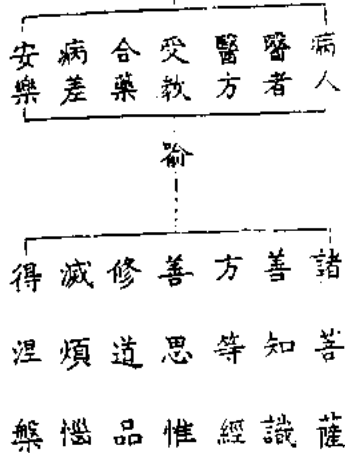 病人
醫者
醫方
受教
合藥
病差
安樂
喻
諸菩薩
善知識
方等經
善思惟
修道品
滅煩惱
得涅槃